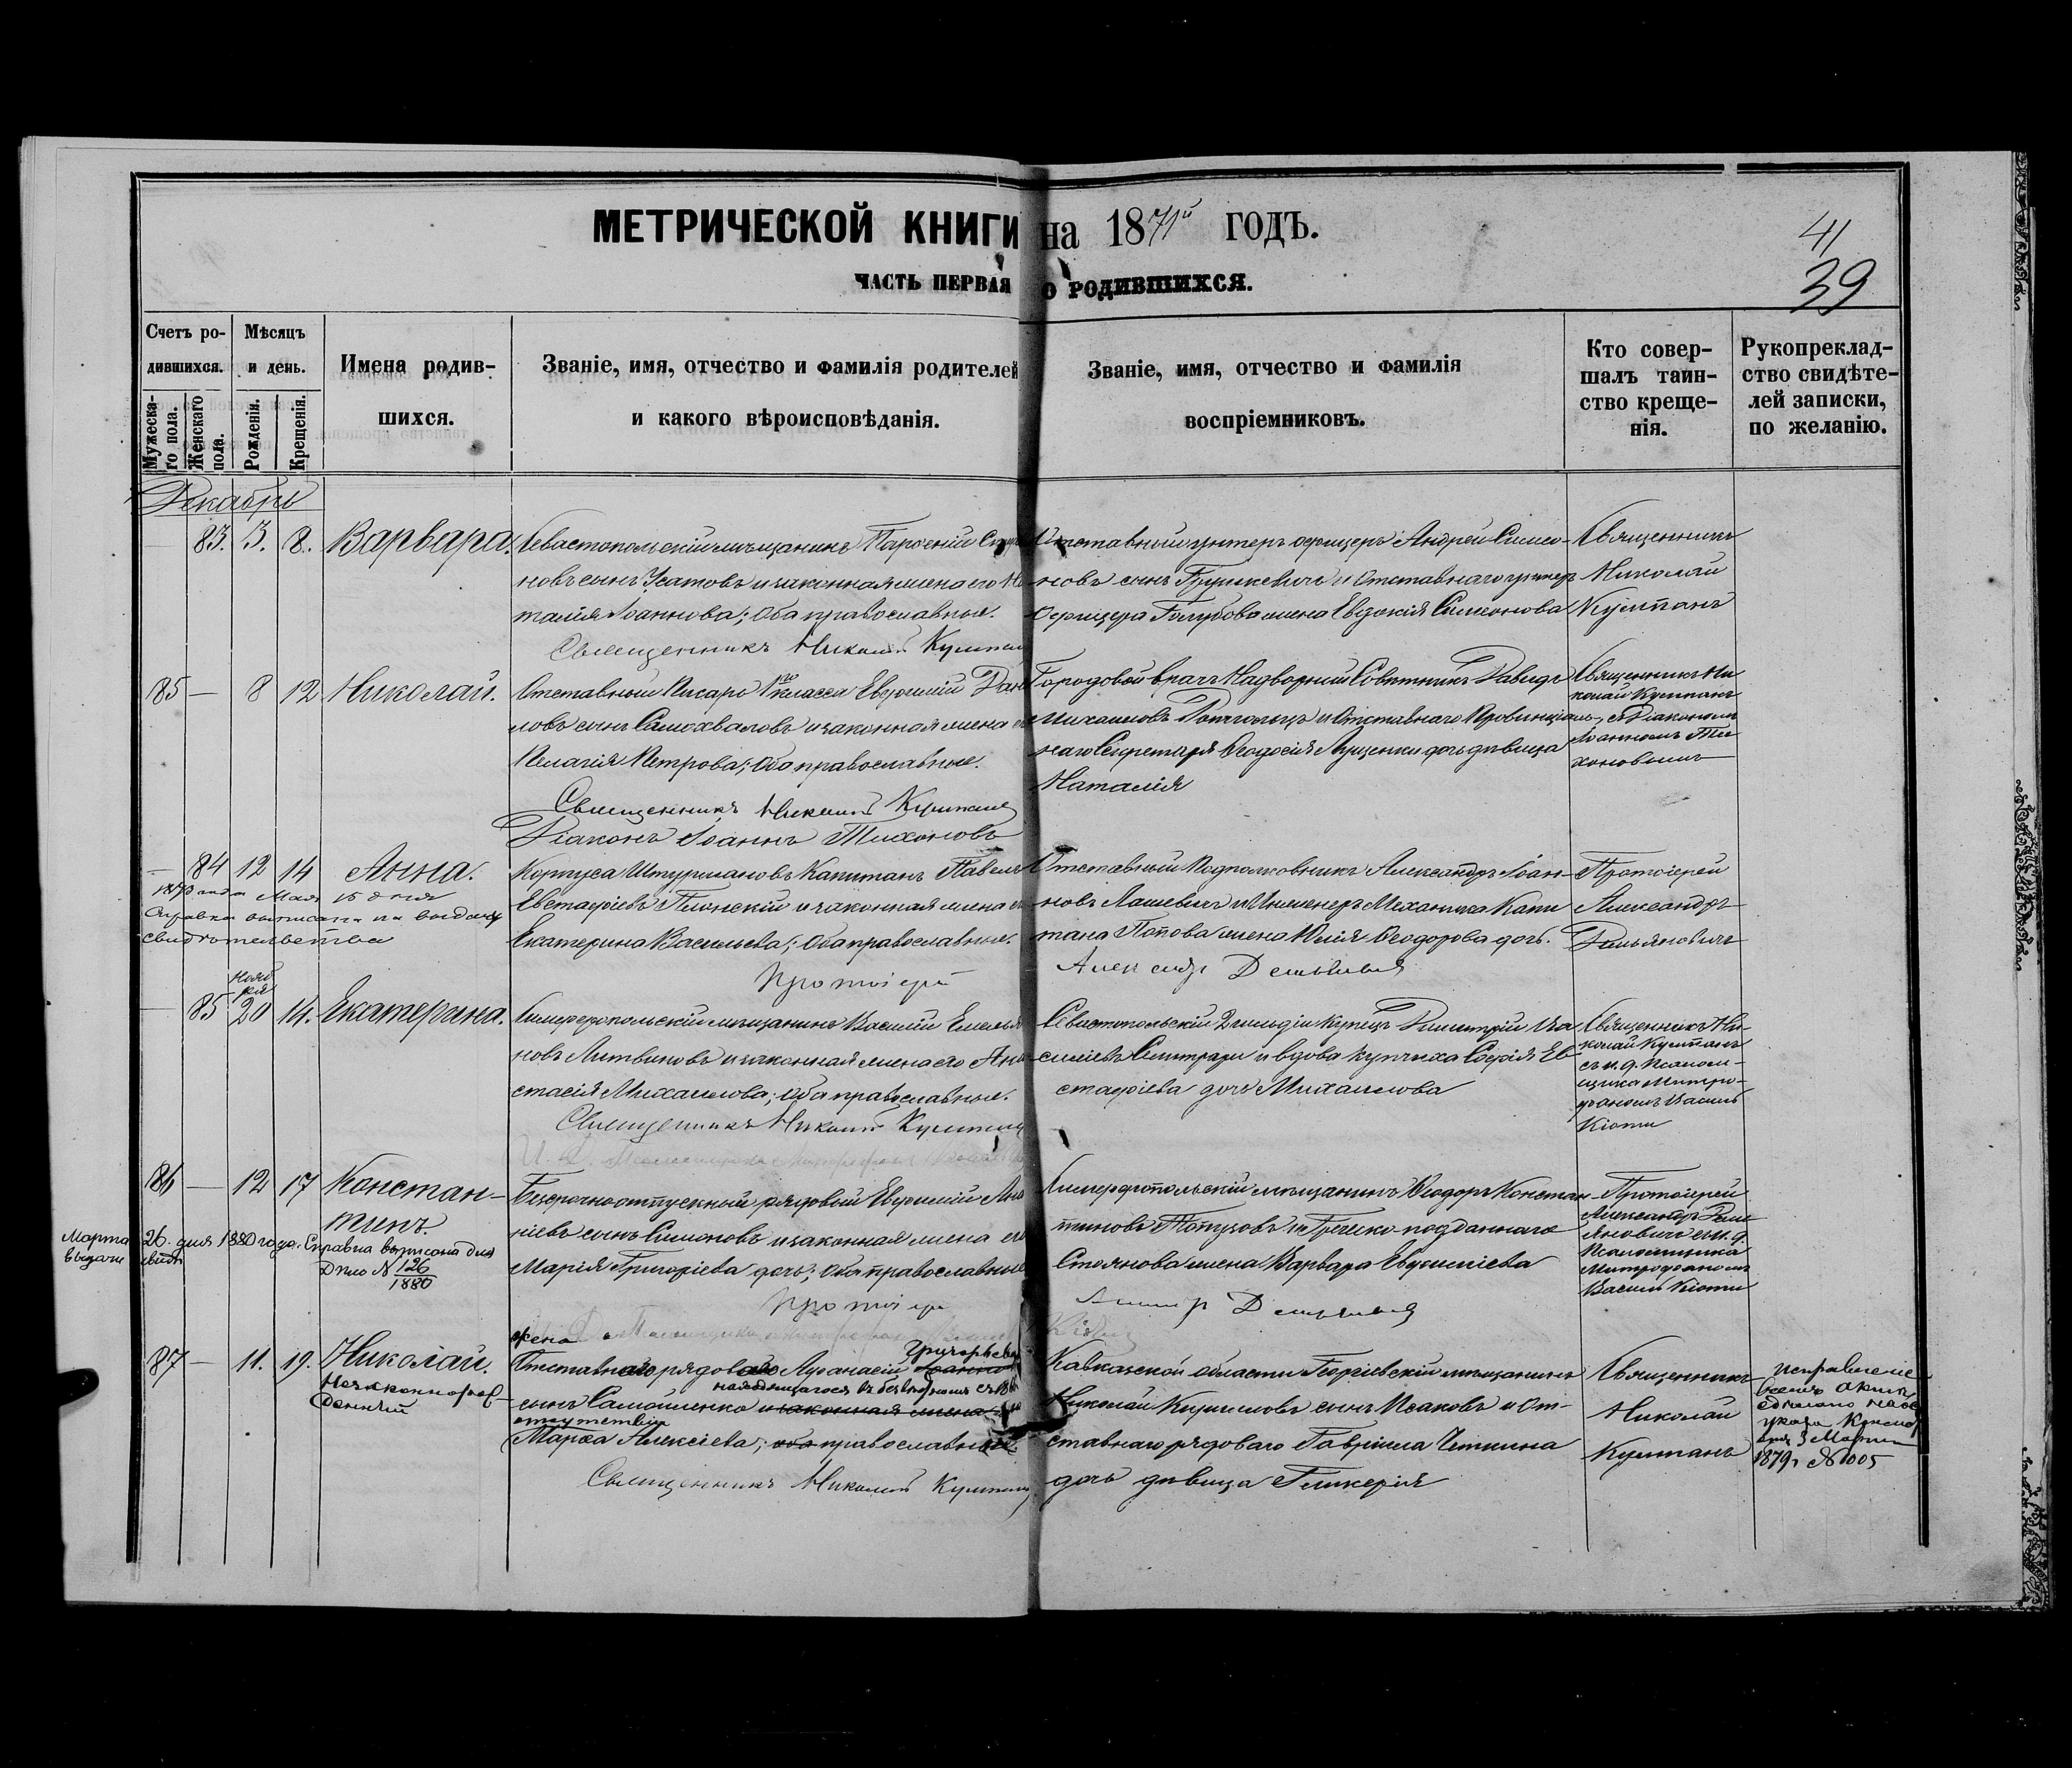 МЕТРИЧЕСКОЙ КНИГИ на 1871й ГОДЪ.
ЧАСТЬ ПЕРВАЯ О РОДИВШИХСЯ.
41
39
Счетъ родившихся.
Мужескаго пола.
Женскаго пола.
Мѣсяцъ и день.
Рожденія.
Крещенія.
Имена родившихся.
Званіе, имя, отчество и фамилія родителей
и какого вѣроисповѣданія.
Званіе, имя, отчество и фамилія
воспріемниковъ.
Кто совершалъ таинство крещенія.
Рукоприкладство свидѣтелей записки, по желанію.
Декабрь
83. 3. 8. Варвара.
Севастопольскій мѣщанинъ Парѳеній
новъ сынъ Усатовъ и законная жена его На
талія Іоаннова; оба православные.
Священникъ Николай Кулипанъ
Отставный унтеръ офицеръ Андрей Симео-
новъ сынъ Грушкевичъ и Отставнаго унтеръ
Офицера Голубова жена Евдокія Симеонова
Священникъ
Николай
85 — 8 12 Николай.
Отставный Писарь 1го класса Евѳимій Дани
ловъ сынъ Самохваловъ и законная жена его
Пелагія Петрова; оба православные.
Священникъ Николай
Діаконъ Іоаннъ Тихоновъ
Городовой врачъ Надворный Совѣтникъ Давидъ
Михаиловъ и Отставнаго Провинціаль-
наго Секретаря Ѳеодосія Луценки дочь дѣвица
Наталія
Священникъ Ни
колай
съ Діакономъ
Іоанномъ Ти
хоновымъ
— 84 12 14 Анна.
1873 года Мая 15 дня
Справка выписана на выдачу
свидѣтельства
Корпуса Штурмановъ Капитанъ Павелъ
Евстафіевъ Плонскій и законная жена его
Екатерина Васильева; оба православные.
Протоіерей
Отставный Подполковникъ Александръ Іоан-
новъ Лашевичъ и Инженеръ Механика Капи
тана Попова жена Юлія Ѳеодорова дочь.
Александръ Демьяновичъ
Протоіерей
Александръ
Демьяновичъ
Нояб
рь
— 85 20 14. Екатерина.
Симферопольскій мѣщанинъ Василій Емелья
новъ Литвиновъ и законная жена его Ана
стасія Михаилова; оба православные.
Священникъ Николай
Севастопольскій 2 гильдіи Купецъ Димитрій Ва
силіевъ и вдова купчиха Софія Ев
стафіева дочь Михаилова
Священникъ Ни-
колай
съ и. д. Псалом-
щика Митро-
фаномъ Василь
Кіоти
86 — 12 17 Констан-
тинъ.
Марта 26. дня 1880 года. Справка выписана для
выдачи свидѣ
Дѣло № 126
1880
Безсрочноотпускный рядовый Евѳимій
ніевъ сынъ Симоновъ и законная жена его
Марія Григоріева дочь; оба православные
Протоіерей
Симферопольскій мѣщанинъ Ѳеодоръ Констан-
тиновъ Топузовъ и Греческо-подданнаго
Стоянова жена Варвара Евѳиміева
Демьяновичъ
Протоіерей
Александръ Демь
яновичъ съ и. д.
Псаломщика
Митрофаномъ
Василь Кіоти
87 — 11. 19. Николай.
Незаконнорож-
денный
жена
Отставнаго рядоваго Аѳанасій Григорьева
находящагося въ безвѣстномъ съ
сынъ Самойленко и законная жена его
отсутствіи
Марѳа Алексіева; оба православные.
Священникъ Николай
Кавказской области Георгіевскій мѣщанинъ
Николай Кирилловъ сынъ Исаковъ и От-
ставнаго рядоваго Гавріила
дочь дѣвица Гликерія
Священникъ
Николай
Исправленіе
сего акта
сдѣлано на осн
указа
3 Марта
1879 г № 1005